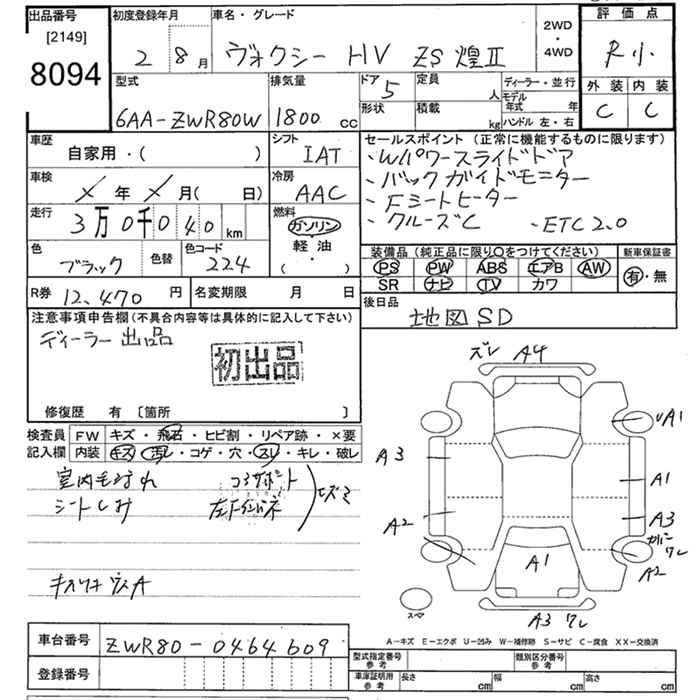 出品番号
[2149]
8094
初度登録年月
2 8月
車名・グレード
ヴォクシー HV ZS 煌Ⅱ
2WD
・
4WD
評価点
R小
外装 内装
C C
型式
6AA-ZWR80W
排気量
1800 cc
ドア 5
形状
定員 人
積載 kg
ディーラー・並行
モデル年式 年
ハンドル 左・右
車歴
自家用・( )
シフト
IAT
セールスポイント (正常に機能するものに限ります)
・Wパワースライドドア
・バックガイドモニター
・Fシートヒーター
・クルーズC ・ETC2.0
車検
× 年 × 月( 日)
冷房
AAC
走行
3万0千040 km
燃料
ガソリン
軽油
( ・ )
色
ブラック
色替
色コード
224
装備品 (純正品に限り○をつけてください)
PS PW ABS エアB AW
SR ナビ TV カワ
新車保証書
有・無
R券 12,470 円
名変期限 月 日
後日品
地図SD
注意事項申告欄(不具合内容等は具体的に記入して下さい)
ディーラー出品
初出品
修復歴 有 [箇所 ]
検査員記入欄
FW キズ・飛石・ヒビ割・リペア跡・×要
内装 キズ・汚レ・コゲ・穴・スレ・キレ・破レ
室内毛よごれ コアサポート
シートしみ 左下インパネ
ヒズミ
キズワキ ウスA
ズレ A4
UA1
A3
A1
A2
A3
カバーワレ
A2
A1
スペア
A3 ワレ
A-キズ E-エクボ U-凹み W-補修跡 S-サビ C-腐食 XX-交換済
車台番号
ZWR80-0464609
登録番号
型式指定番号 参考
類別区分番号 参考
車庫証明用 参考
長さ cm
幅 cm
高さ cm